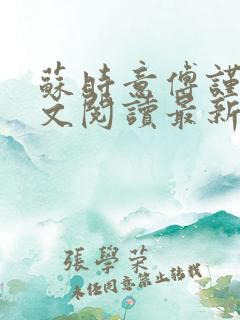 蘇時意傅謹
文閱讀最新
張學榮
未任同意禁止轉載